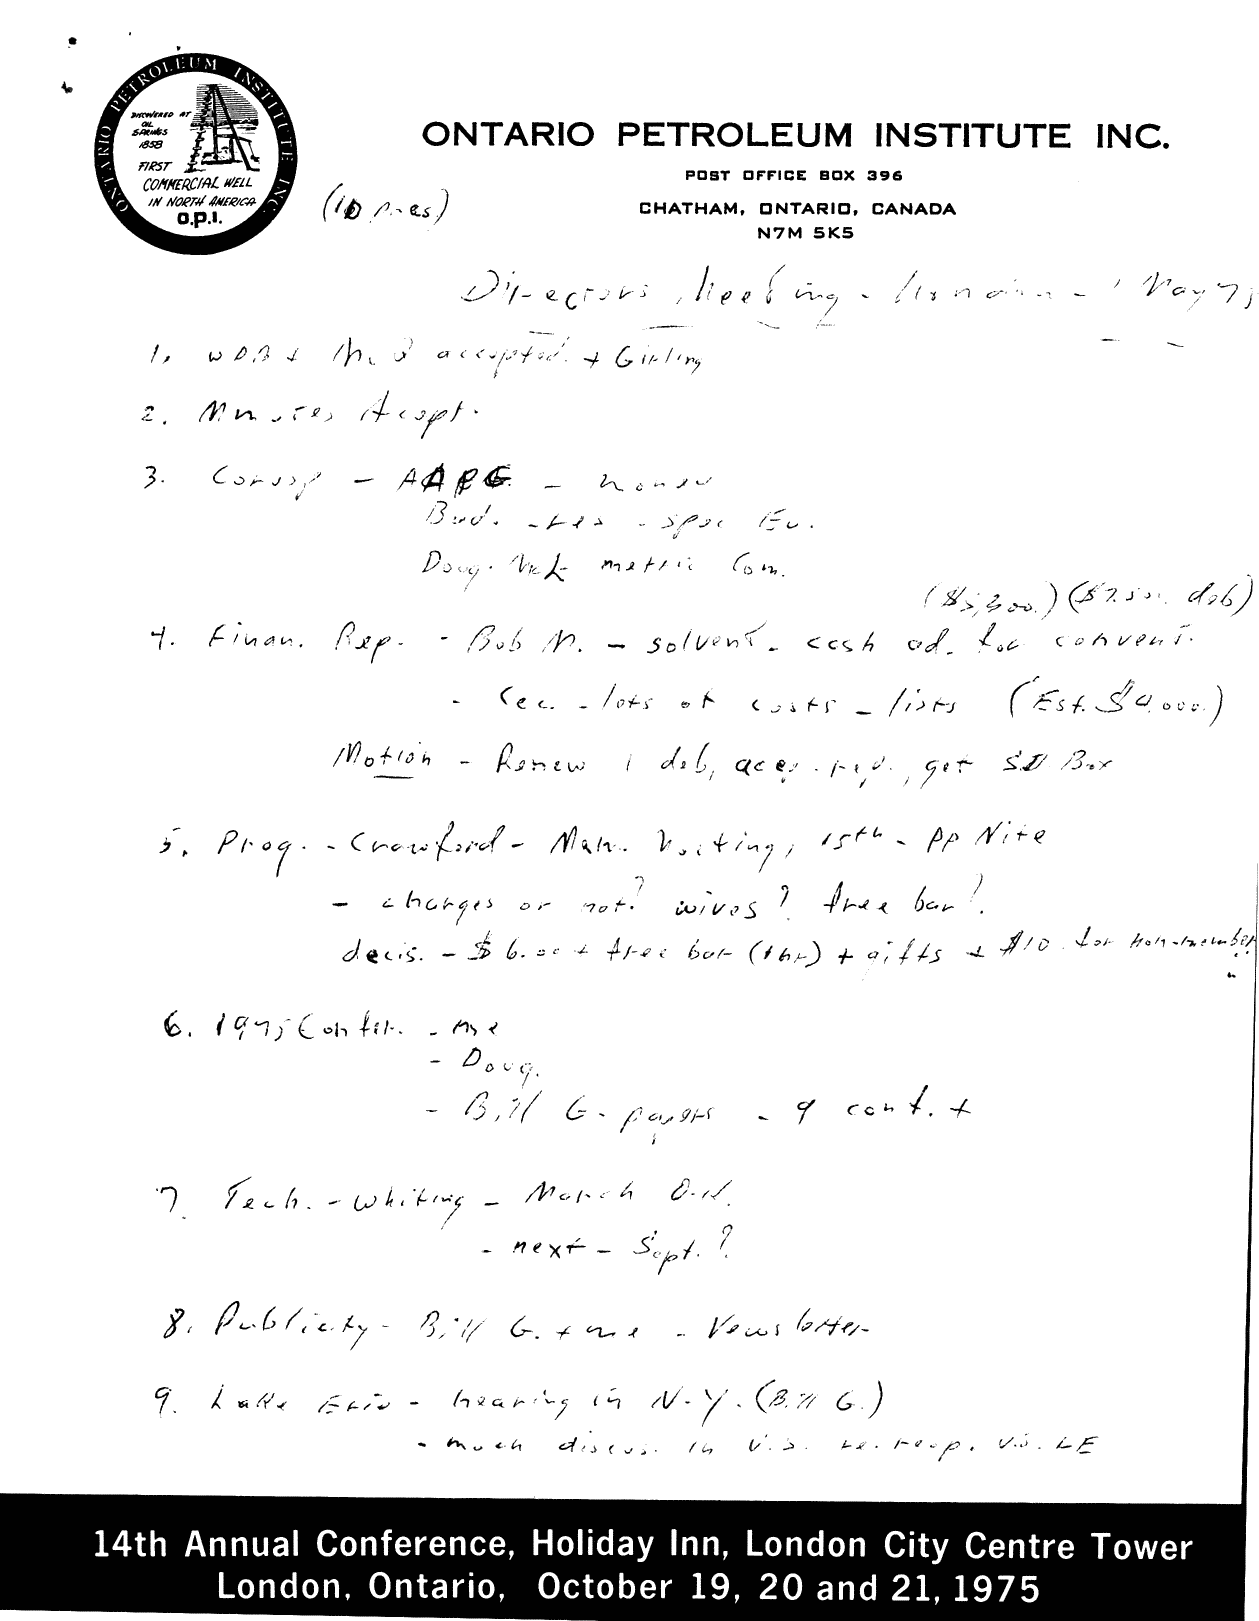 ONTARIO PETROLEUM INSTITUTE INC.
DISCOVERED AT
OIL
SPRINGS
1858
FIRST
COMMERCIAL WELL
IN NORTH AMERICA
O.P.I.
ONTARIO PETROLEUM INSTITUTE INC.
POST OFFICE BOX 396
CHATHAM, ONTARIO, CANADA
N7M 5K5
(10 pres)
Directors Meeting - London - 1 May 75
1. WDB + accepted. + Girling
2. Minutes Accept.
3. Corresp - AAPG -
Bud. - res - spec Ev.
Doug. McL metric Com.
($5,300.) ($7,500. deb)
4. Finan. Rep. - Bob M. - solvent - cash ad. for convent.
- Sec. - lots of costs - lists (Est. $4,000.)
Motion - Renew 1 deb, get SD Box
5. Prog. - Crawford - Mah. Hosting, 15th - PP Nite
- charges or not? wives? free bar?
decis. - $6.00 + free bar (1hr) + gifts + $10. for non-member
6. 1975 Confer. - me
- Doug.
- Bill G. - papers - 9 conf. +
7. Tech. - Whiting - March
- next - Sept.?
8. Publicity - Bill G. + me - Newsletter
9. Lake Erie - hearing in N.Y. (Bill G.)
- much discus. in U.S. re. LE
14th Annual Conference, Holiday Inn, London City Centre Tower
London, Ontario, October 19, 20 and 21, 1975